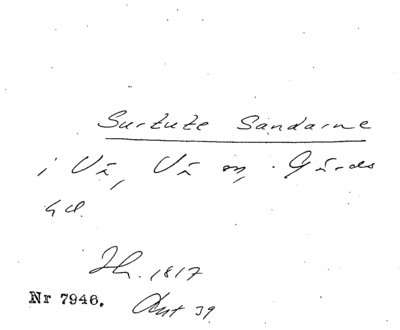 Surtute Sandarne
i Vä, Vä sn, Gärds
hd.
Jh. 1817
Nr 7946. Akt 39